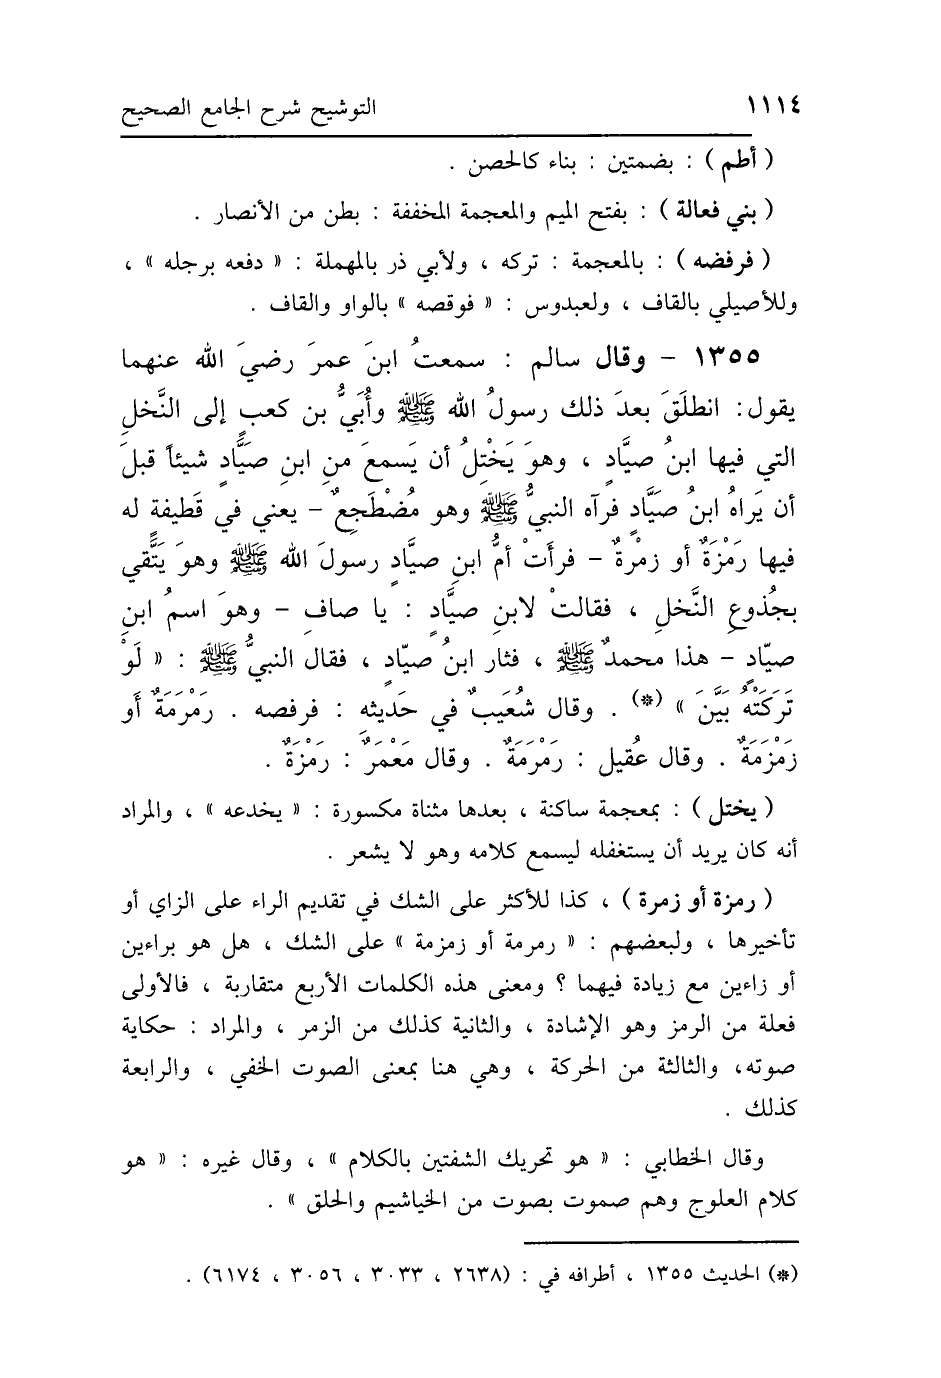 ١١١٤ التوشيح شرح الجامع الصحيح
( أطم ) : بضمتين : بناء كالحصن .
( بني فعالة ) : بفتح الميم والمعجمة المخففة : بطن من الأنصار .
( فرفضه ) : بالمعجمة : تركه ، ولأبي ذر بالمهملة : « دفعه برجله » ،
وللأصيلي بالقاف ، ولعبدوس : « فوقصه » بالواو والقاف .
١٣٥٥ – وقال سالم : سمعتُ ابنَ عمرَ رضيَ الله عنهما
يقول: انطلَقَ بعدَ ذلك رسولُ الله ﷺ وأُبَيُّ بن كعبٍ إلى النَّخلِ
التي فيها ابنُ صيَّادٍ ، وهوَ يَخْتِلُ أن يَسمعَ منِ ابنِ صيَّادٍ شيئاً قبلَ
أن يَراهُ ابنُ صَيَّادٍ فرآه النبيُّ ﷺ وهو مُضْطَجِعٌ – يعني في قَطيفةٍ له
فيها رَمْزَةٌ أو زمْرةٌ – فرأَتْ أمُّ ابنِ صيَّادٍ رسولَ الله ﷺ وهوَ يَتَّقي
بجُذوعِ النَّخلِ ، فقالتْ لابنِ صيَّادٍ : يا صافِ – وهوَ اسمُ ابنِ
صيّادٍ – هذا محمدٌ ﷺ ، فثار ابنُ صيّادٍ ، فقال النبيُّ ﷺ : « لَوْ
تَرَكَتْهُ بَيَّنَ » (*) . وقال شُعَيبٌ في حَديثِهِ : فرفصه . رَمْرَمَةٌ أو
زَمْزَمَةٌ . وقال عُقيل : رَمْرَمَةٌ . وقال مَعْمَرٌ : رَمْزَةٌ .
( يختل ) : بمعجمة ساكنة ، بعدها مثناة مكسورة : « يخدعه » ، والمراد
أنه كان يريد أن يستغفله ليسمع كلامه وهو لا يشعر .
( رمزة أو زمرة ) ، كذا للأكثر على الشك في تقديم الراء على الزاي أو
تأخيرها ، ولبعضهم : « رمرمة أو زمزمة » على الشك ، هل هو براءين
أو زاءين مع زيادة فيهما ؟ ومعنى هذه الكلمات الأربع متقاربة ، فالأولى
فعلة من الرمز وهو الإشادة ، والثانية كذلك من الزمر ، والمراد : حكاية
صوته، والثالثة من الحركة ، وهي هنا بمعنى الصوت الخفي ، والرابعة
كذلك .
وقال الخطابي : « هو تحريك الشفتين بالكلام » ، وقال غيره : « هو
كلام العلوج وهم صموت بصوت من الخياشيم والحلق » .
(*) الحديث ١٣٥٥ ، أطرافه في : (٢٦٣٨ ، ٣٠٣٣ ، ٣٠٥٦ ، ٦١٧٤) .